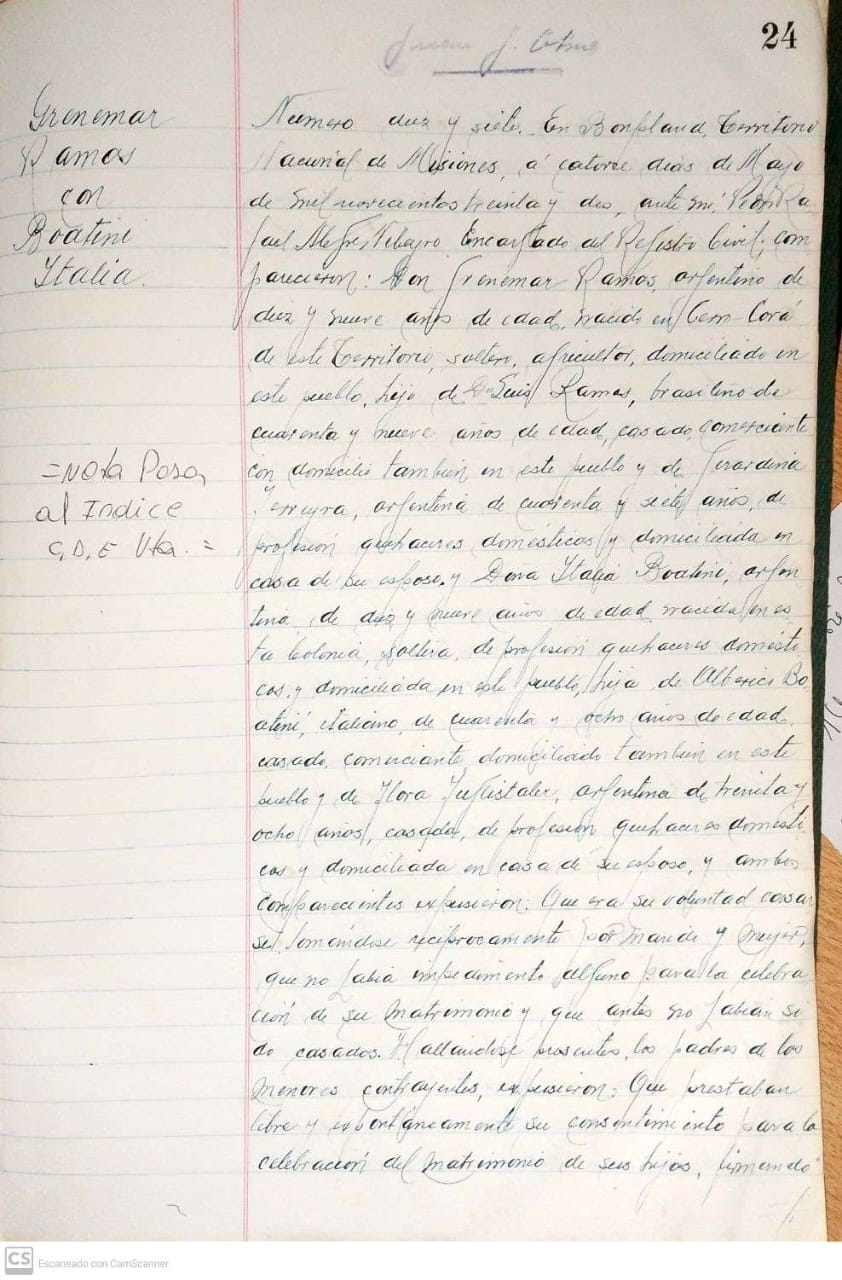 24
Grenemar
Ramos
con
Boatini
Italia.
=Nota Posa,
al Indice
=
Numero diez y siete. En Bonpland, Territorio
Nacional de Misiones, á catorce dias de Mayo
de mil novecientos treinta y dos, ante mi, Pedro Ra
fael Alegre Encargado del Registro Civil; com
parecieron: Don Grenemar Ramos, argentino de
diez y nueve años de edad, nacido en Cerro Corá
de este Territorio, soltero, agricultor, domiciliado en
este pueblo, hijo de Dn Luis Ramos, brasileño de
cuarenta y nueve años de edad, casado, comerciante
con domicilio tambien en este pueblo y de Gerardina
Ferreyra, argentina de cuarenta y siete años, de
profesion quehaceres domésticos y domiciliada en
casa de su esposo. y Doña Italia Boatini, argen
tina de diez y nueve años de edad nacida en es
ta Colonia, soltera, de profesion quehaceres domésti
cos, y domiciliada en este pueblo, hija de Alberico Bo
atini, italiano, de cuarenta y ocho años de edad,
casado, comerciante, domiciliado tambien en este
pueblo y de Flora argentina de treinta y
ocho años, casada, de profesion quehaceres domésti
cos y domiciliada en casa de su esposo, y ambos
comparecientes expusieron: Que era su voluntad casar
se, tomándose reciprocamente por marido y mujer,
que no habia impedimento alguno para la celebra
ción de su matrimonio y que antes no habian si
do casados. Hallándose presentes, los padres de los
menores contrayentes, expusieron: Que prestaban
libre y espontáneamente su consentimiento para la
celebración del matrimonio de sus hijos, firmando
CS Escaneado con CamScanner